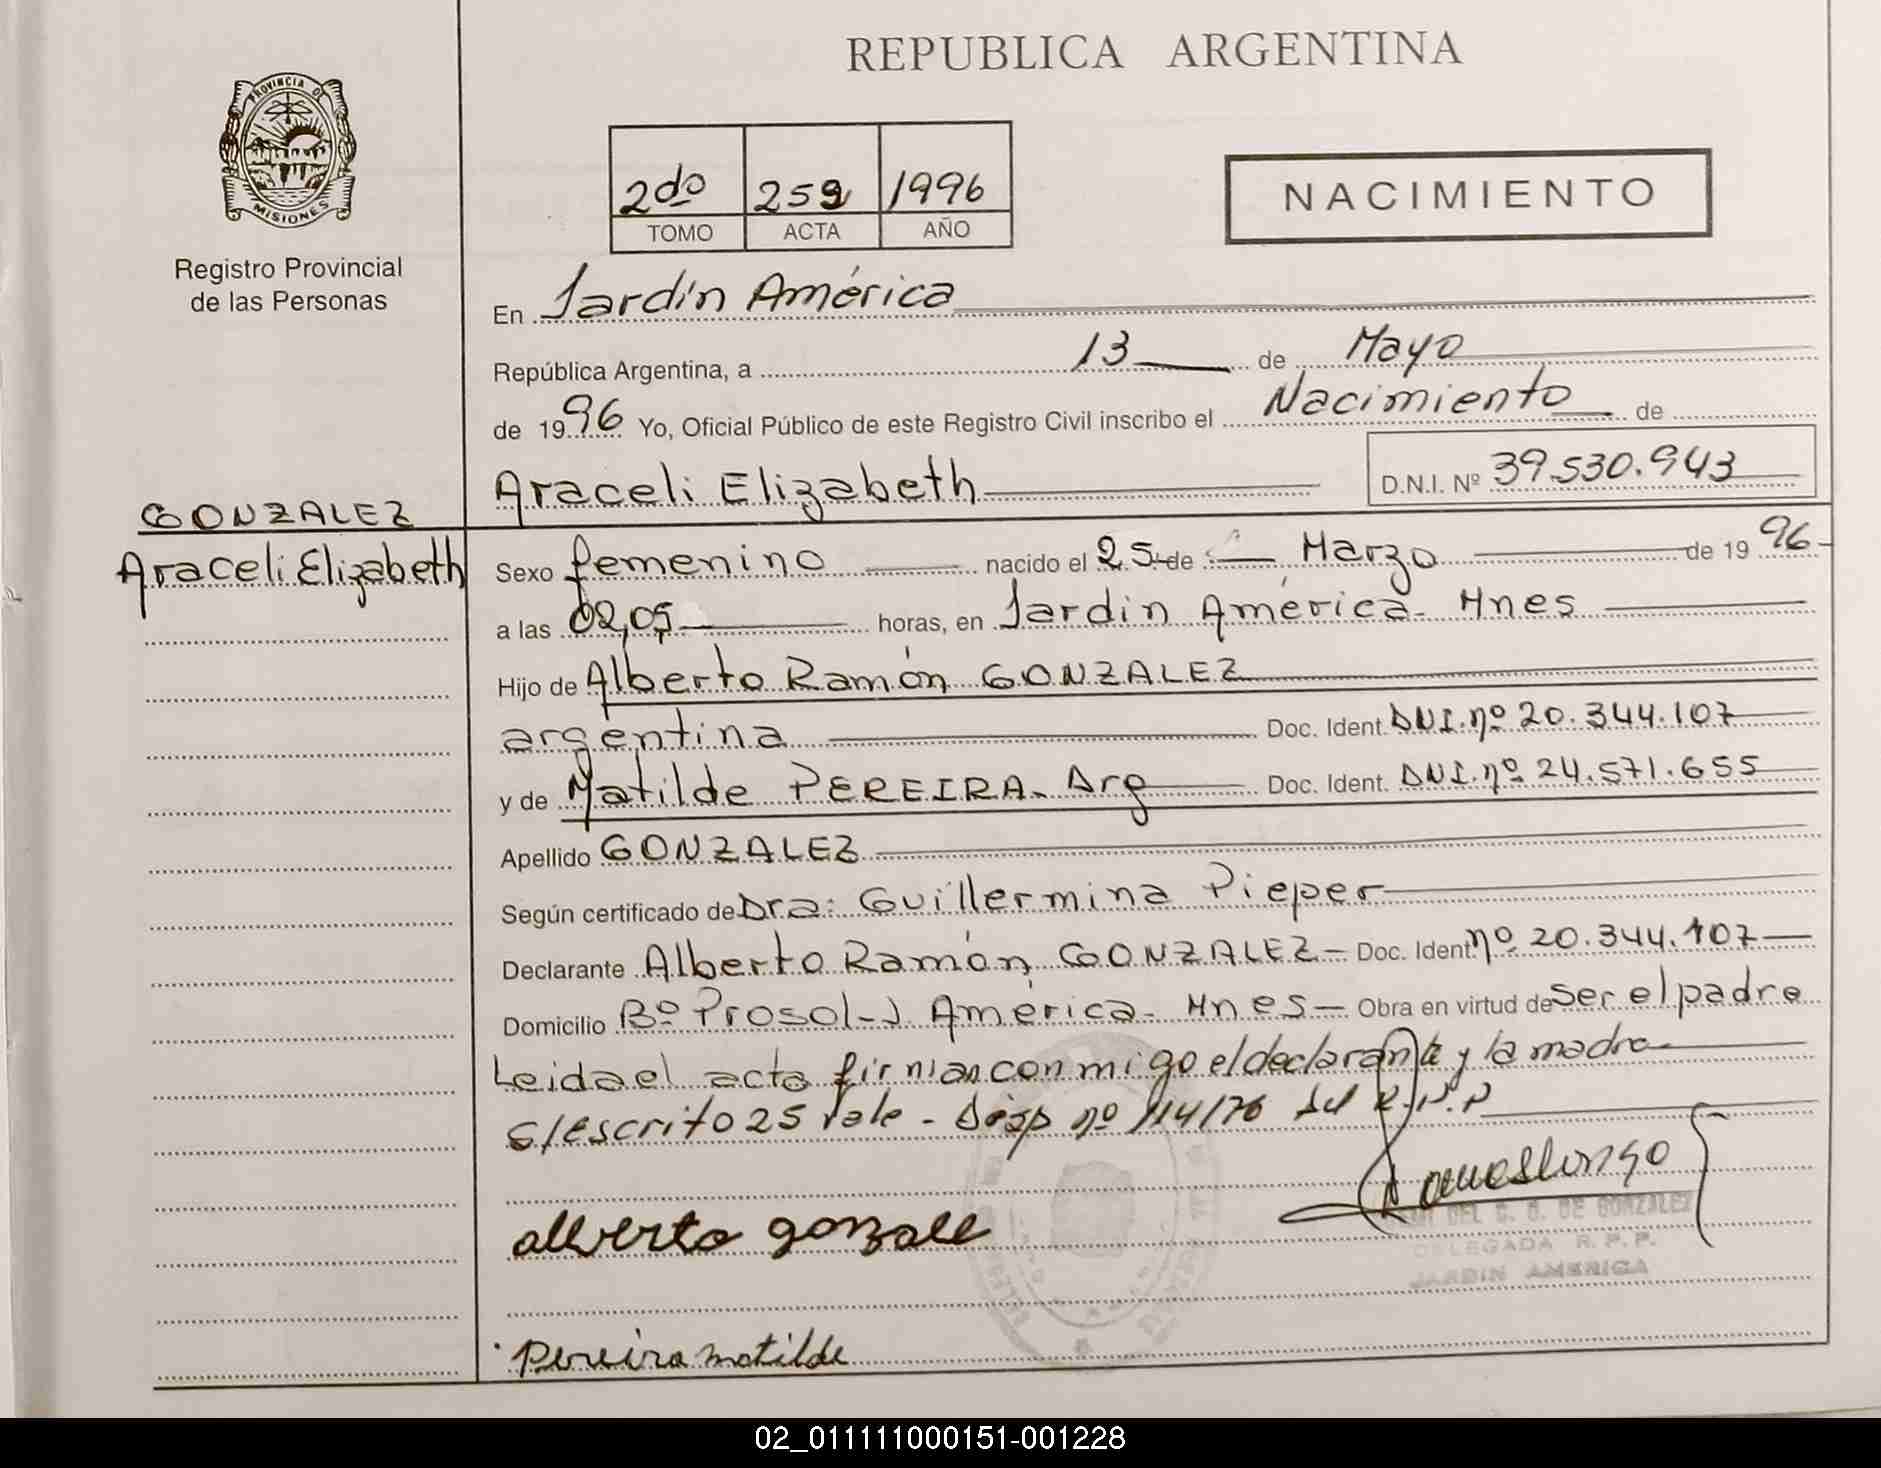 REPUBLICA ARGENTINA
PROVINCIA DE
MISIONES
Registro Provincial
de las Personas
2do 259 1996
TOMO ACTA AÑO
NACIMIENTO
En Jardín América
República Argentina, a 13 de Mayo
de 1996 Yo, Oficial Público de este Registro Civil inscribo el Nacimiento de
Araceli Elizabeth D.N.I. Nº 39.530.943
GONZALEZ
Araceli Elizabeth
Sexo femenino nacido el 25 de Marzo de 1996
a las 02,05 horas, en Jardin América - Mnes
Hijo de Alberto Ramón GONZALEZ
argentina Doc. Ident. DNI. nº 20.344.107
y de Matilde PEREIRA - Arg Doc. Ident. DNI. nº 24.571.655
Apellido GONZALEZ
Según certificado de Dra: Guillermina Pieper
Declarante Alberto Ramón GONZALEZ - Doc. Ident. nº 20.344.107
Domicilio Bº Prosol - J América - Mnes - Obra en virtud de Ser el padre
Leida el acta firman conmigo el declarante y la madre
s/escrito 25 vale - Disp nº 114/76 del R.P.P
DEL C. G. DE GONZALEZ
DELEGADA R. P. P.
JARDIN AMERICA
alberto gonzale
Pereira matilde
02_011111000151-001228